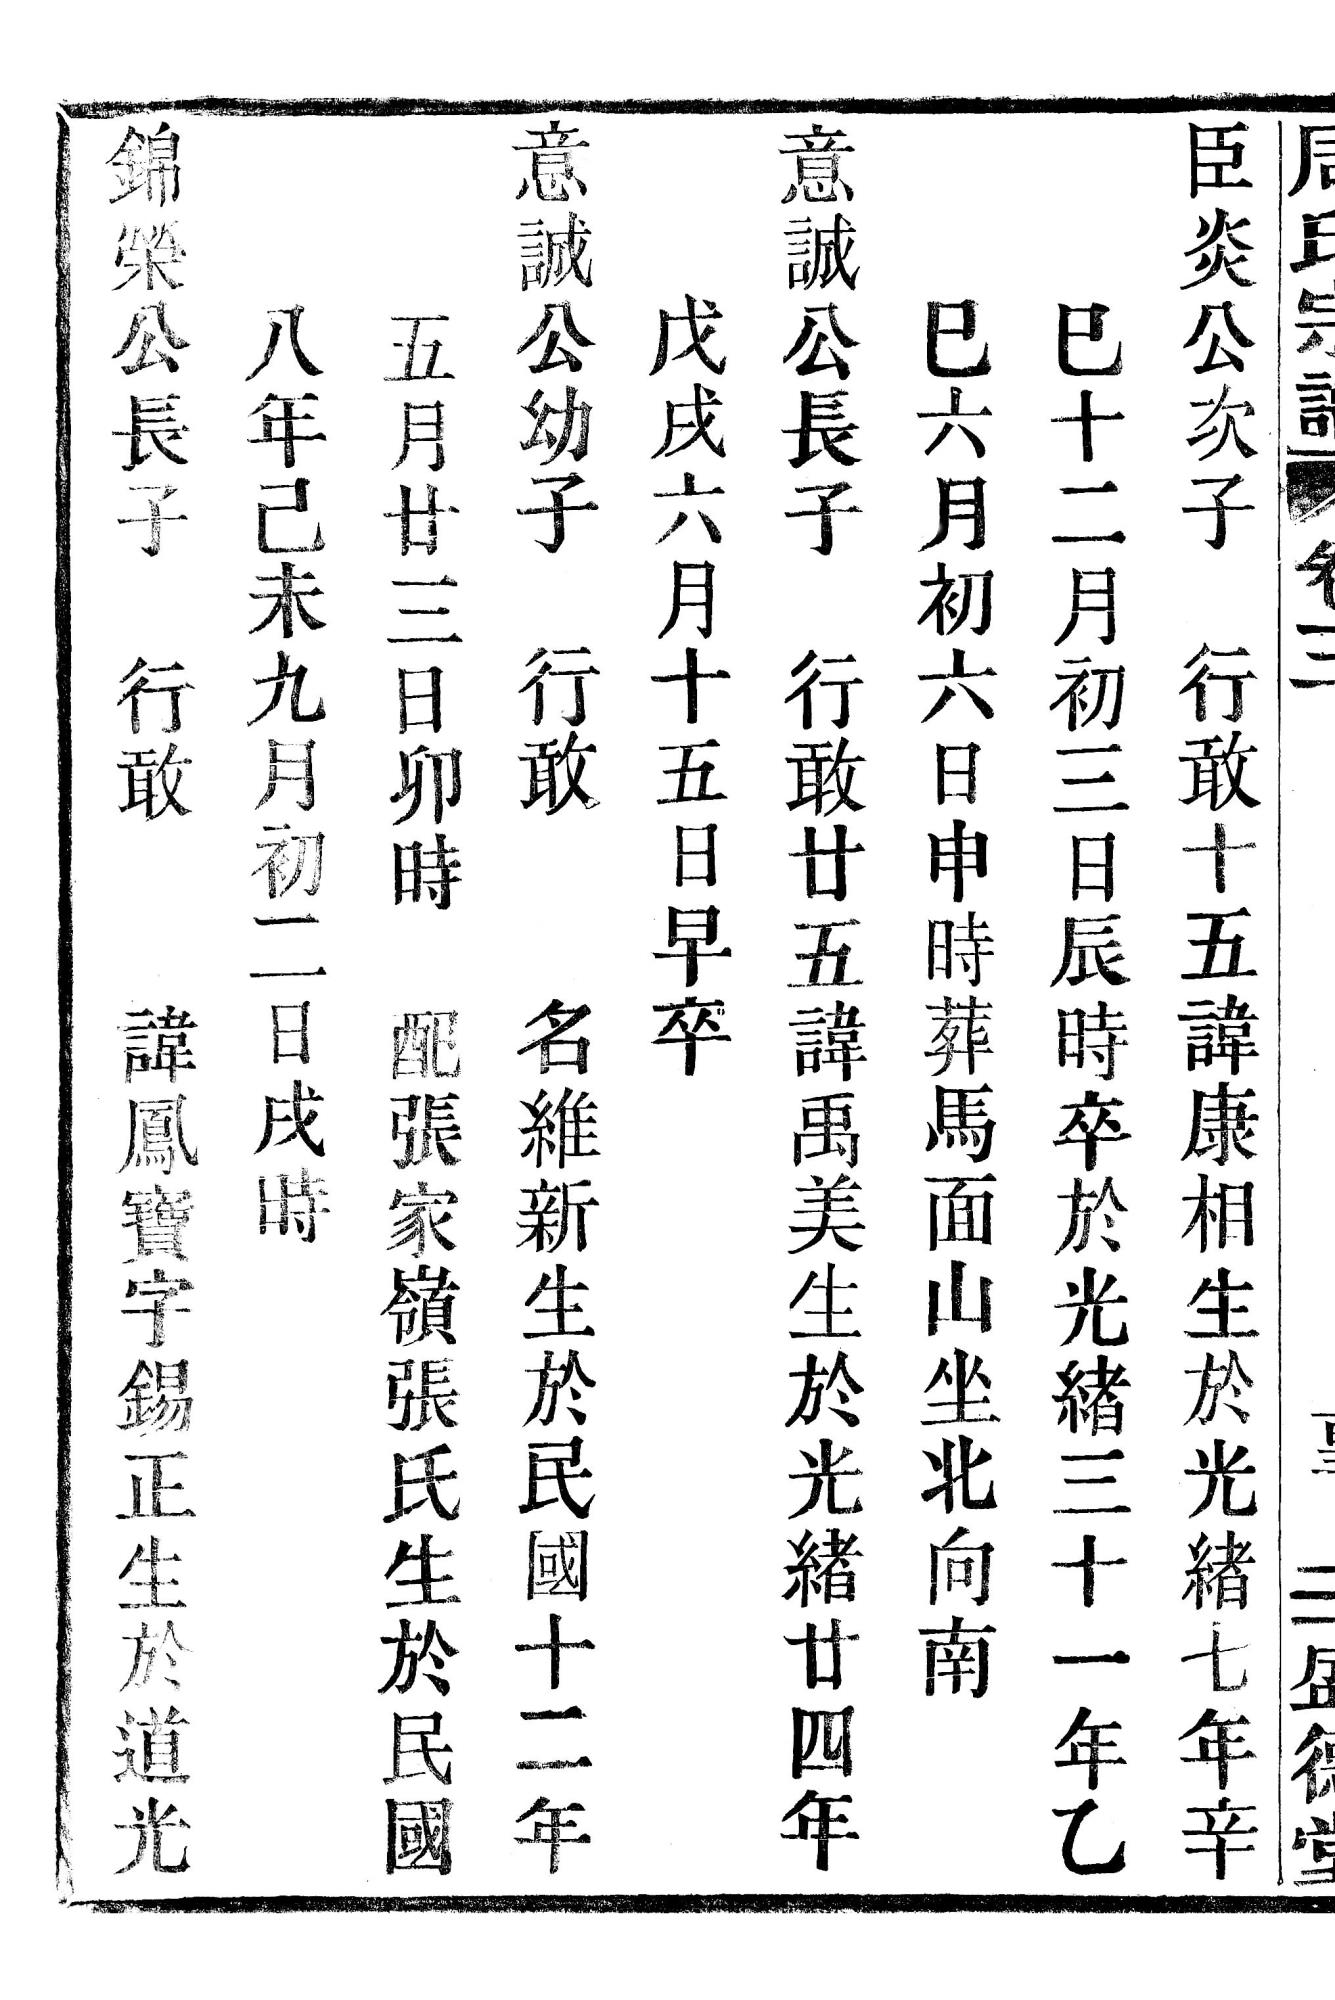 周氏宗譜 卷三 二盛德堂
臣炎公次子 行敢十五諱康相生於光緒七年辛
巳十二月初三日辰時卒於光緒三十一年乙
巳六月初六日申時葬馬面山坐北向南
意誠公長子 行敢廿五諱禹美生於光緒廿四年
戊戌六月十五日早卒
意誠公幼子 行敢 名維新生於民國十二年
五月廿三日卯時 配張家嶺張氏生於民國
八年己未九月初二日戌時
錦榮公長子 行敢 諱鳳寶字錫正生於道光